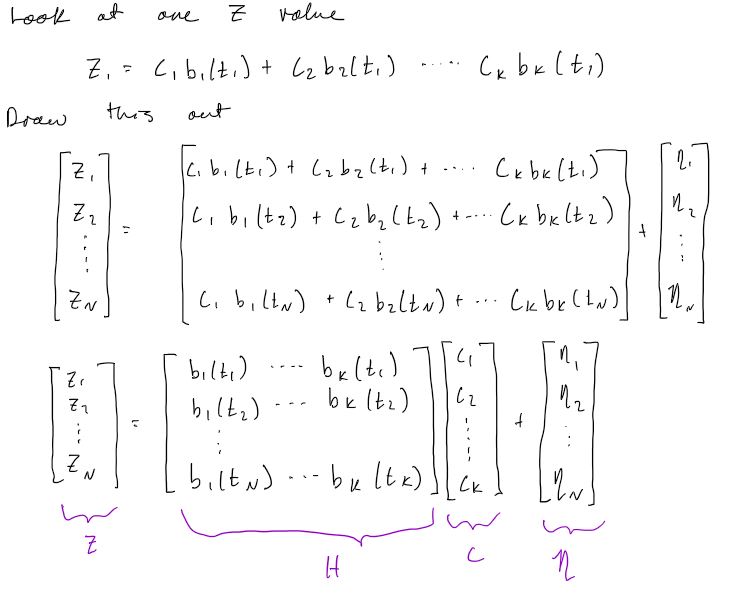 Look at one Z value
Z₁ = C₁b₁(t₁) + C₂b₂(t₁) ····· Cₖbₖ(t₁)
Draw this out
[Z₁ Z₂ ⋮ Z_N] = [C₁b₁(t₁) + C₂b₂(t₁) + ···· Cₖbₖ(t₁)
C₁b₁(t₂) + C₂b₂(t₂) + ··· Cₖbₖ(t₂)
⋮
C₁b₁(t_N) + C₂b₂(t_N) + ··· Cₖbₖ(t_N)] + [η₁ η₂ ⋮ η_N]
[Z₁ Z₂ ⋮ Z_N] = [b₁(t₁) ···· bₖ(t₁)
b₁(t₂) ··· bₖ(t₂)
⋮
b₁(t_N) ··· bₖ(tₖ)] [C₁ C₂ ⋮ Cₖ] + [η₁ η₂ ⋮ η_N]
Z H C η